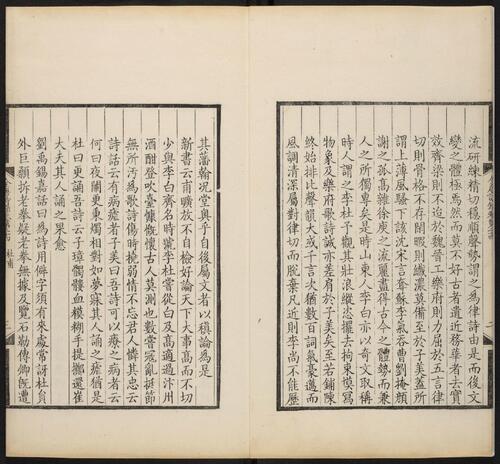 流研練精切穩順聲勢謂之為律詩由是而後文
變之體極焉然而莫不好古者遺近務華者去實
效齊梁則不逮於魏晉工樂府則力屈於五言律
切則骨格不存閑暇則纖濃莫備至於子美蓋所
謂上薄風騷下該沈宋言奪蘇李氣吞曹劉掩顏
謝之孤高雜徐庾之流麗盡得古今之體勢而兼
人之所獨專矣是時山東人李白亦以奇文取稱
時人謂之李杜予觀其壯浪縱恣擺去拘束模寫
物象及樂府歌詩誠亦差肩於子美矣至若鋪陳
終始排比聲韻大或千言次猶數百詞氣豪邁而
風調清深屬對律切而脫棄凡近則李尚不能歷
其藩翰况堂奧乎自後屬文者以稹論為是
新書云甫曠放不自檢好論天下大事高而不切
少與李白齊名時號李杜嘗從白及高適過汴州
酒酣登吹臺慷慨懷古人莫測也數嘗寇亂挺節
無所汚為歌詩傷時撓弱情不忘君人憐其忠云
詩話云有病瘧者子美曰吾詩可以療之病者云
何曰夜闌更秉燭相對如夢寐其人誦之瘧猶是
杜曰更誦吾詩云子璋髑髏血糢糊手提擲還崔
大夫其人誦之果愈
劉禹錫嘉話曰為詩用僻字須有來處常訝杜員
外巨顙拆老拳疑老拳無據及覽石勒傳卿旣遭
杜甫